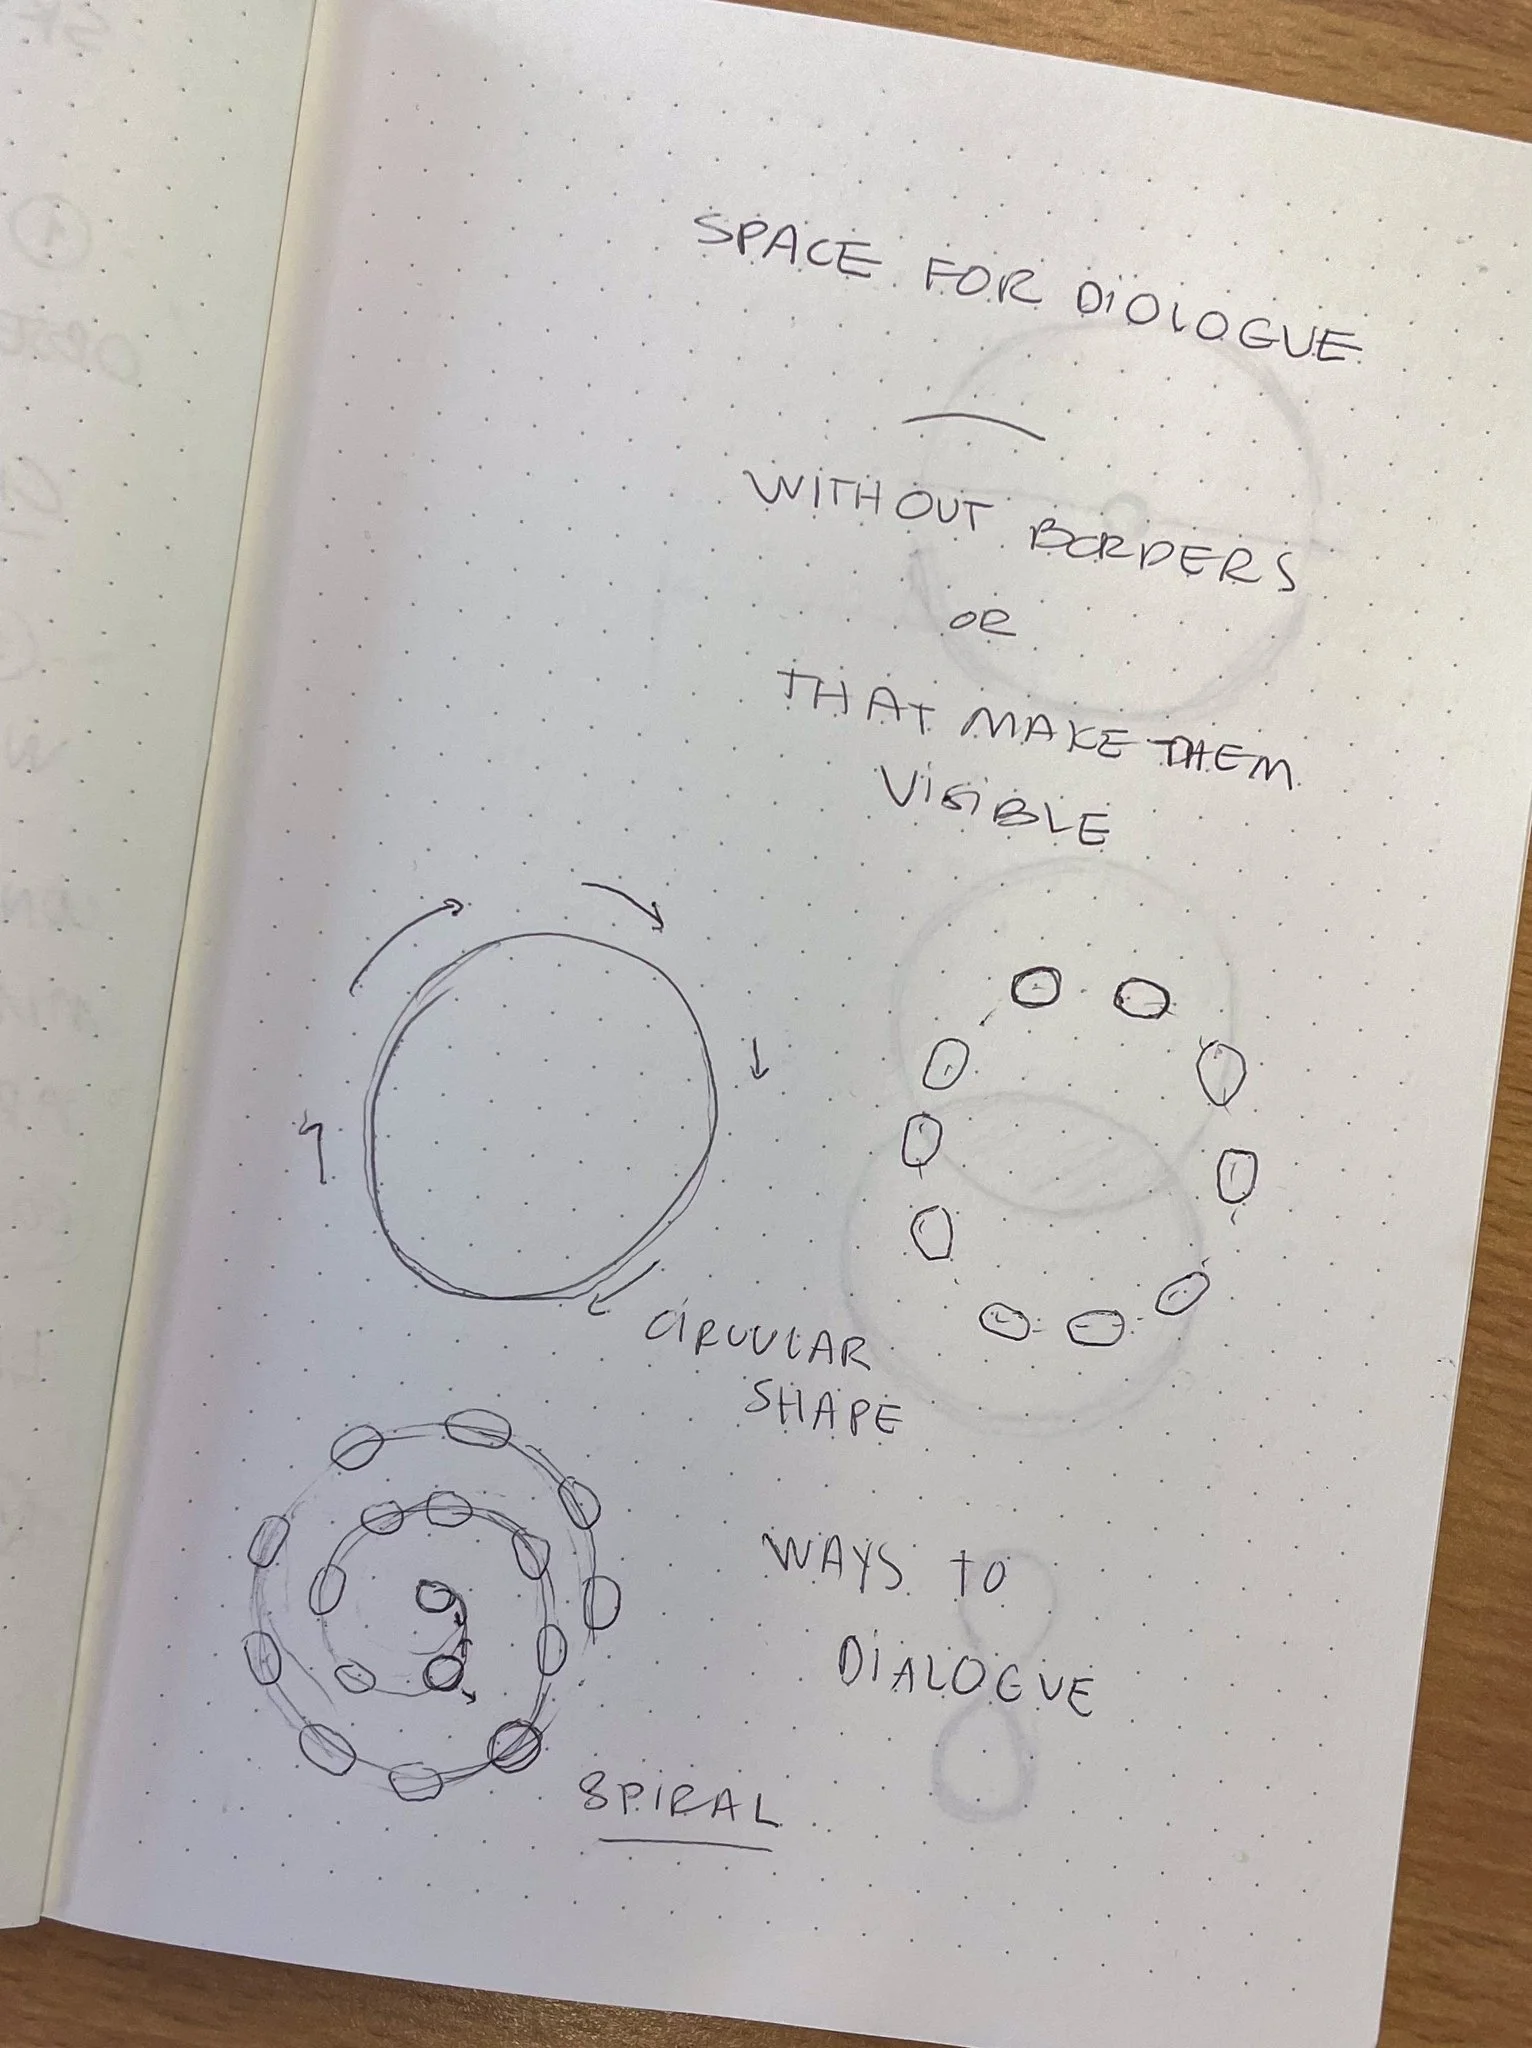 SPACE FOR DIOLOGUE
WITHOUT BORDERS
OR
THAT MAKE THEM
VISIBLE
CIRCULAR
SHAPE
WAYS TO
DIALOGUE
SPIRAL